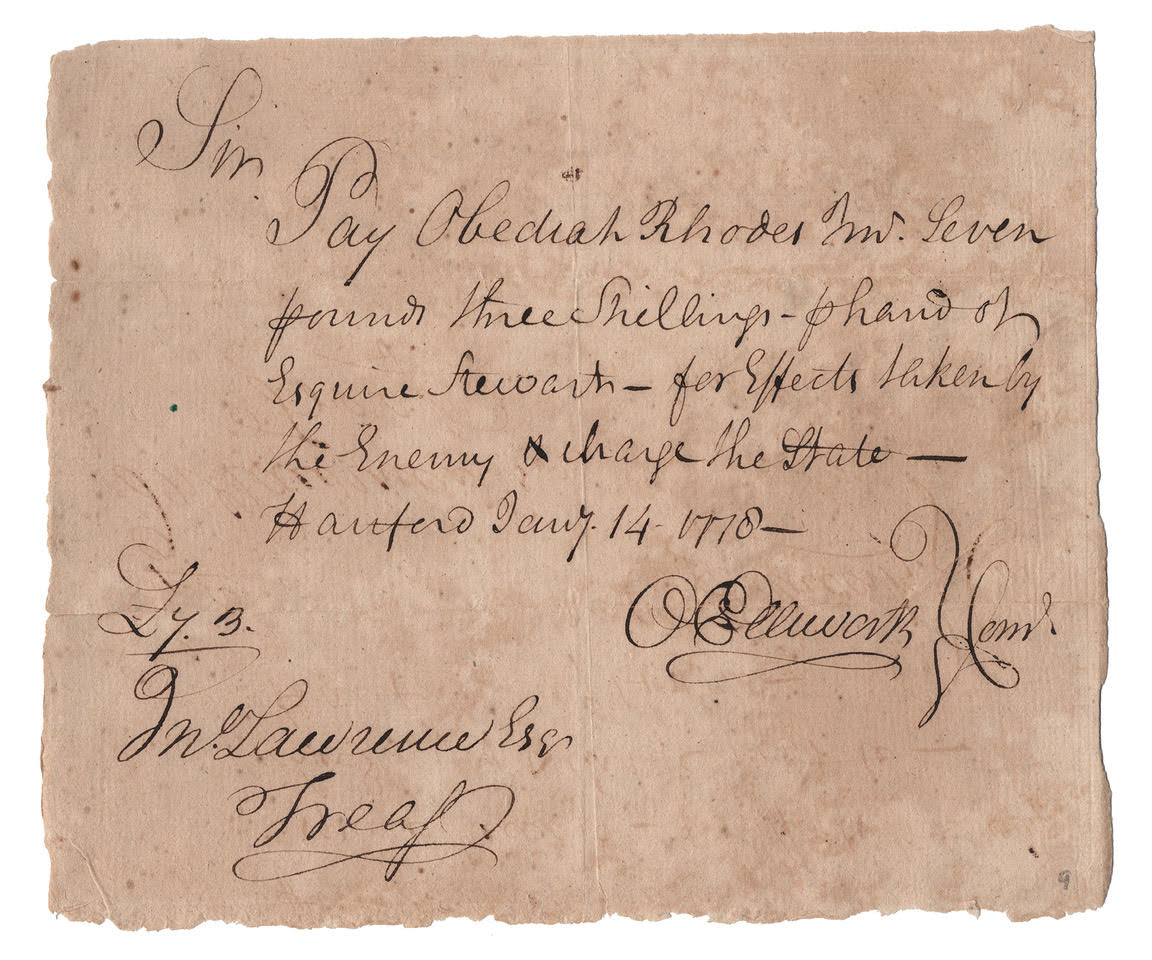 Sir
Pay Obediah Rhodes Junr. Seven
pounds three Shillings - p hand of
Esquire Stewart — for Effects taken by
the Enemy & charge the State —
Hartford Jany. 14 1778 —
O Ellsworth } Comt.
Jn.o Lawrence Esqr
Treasr.
9